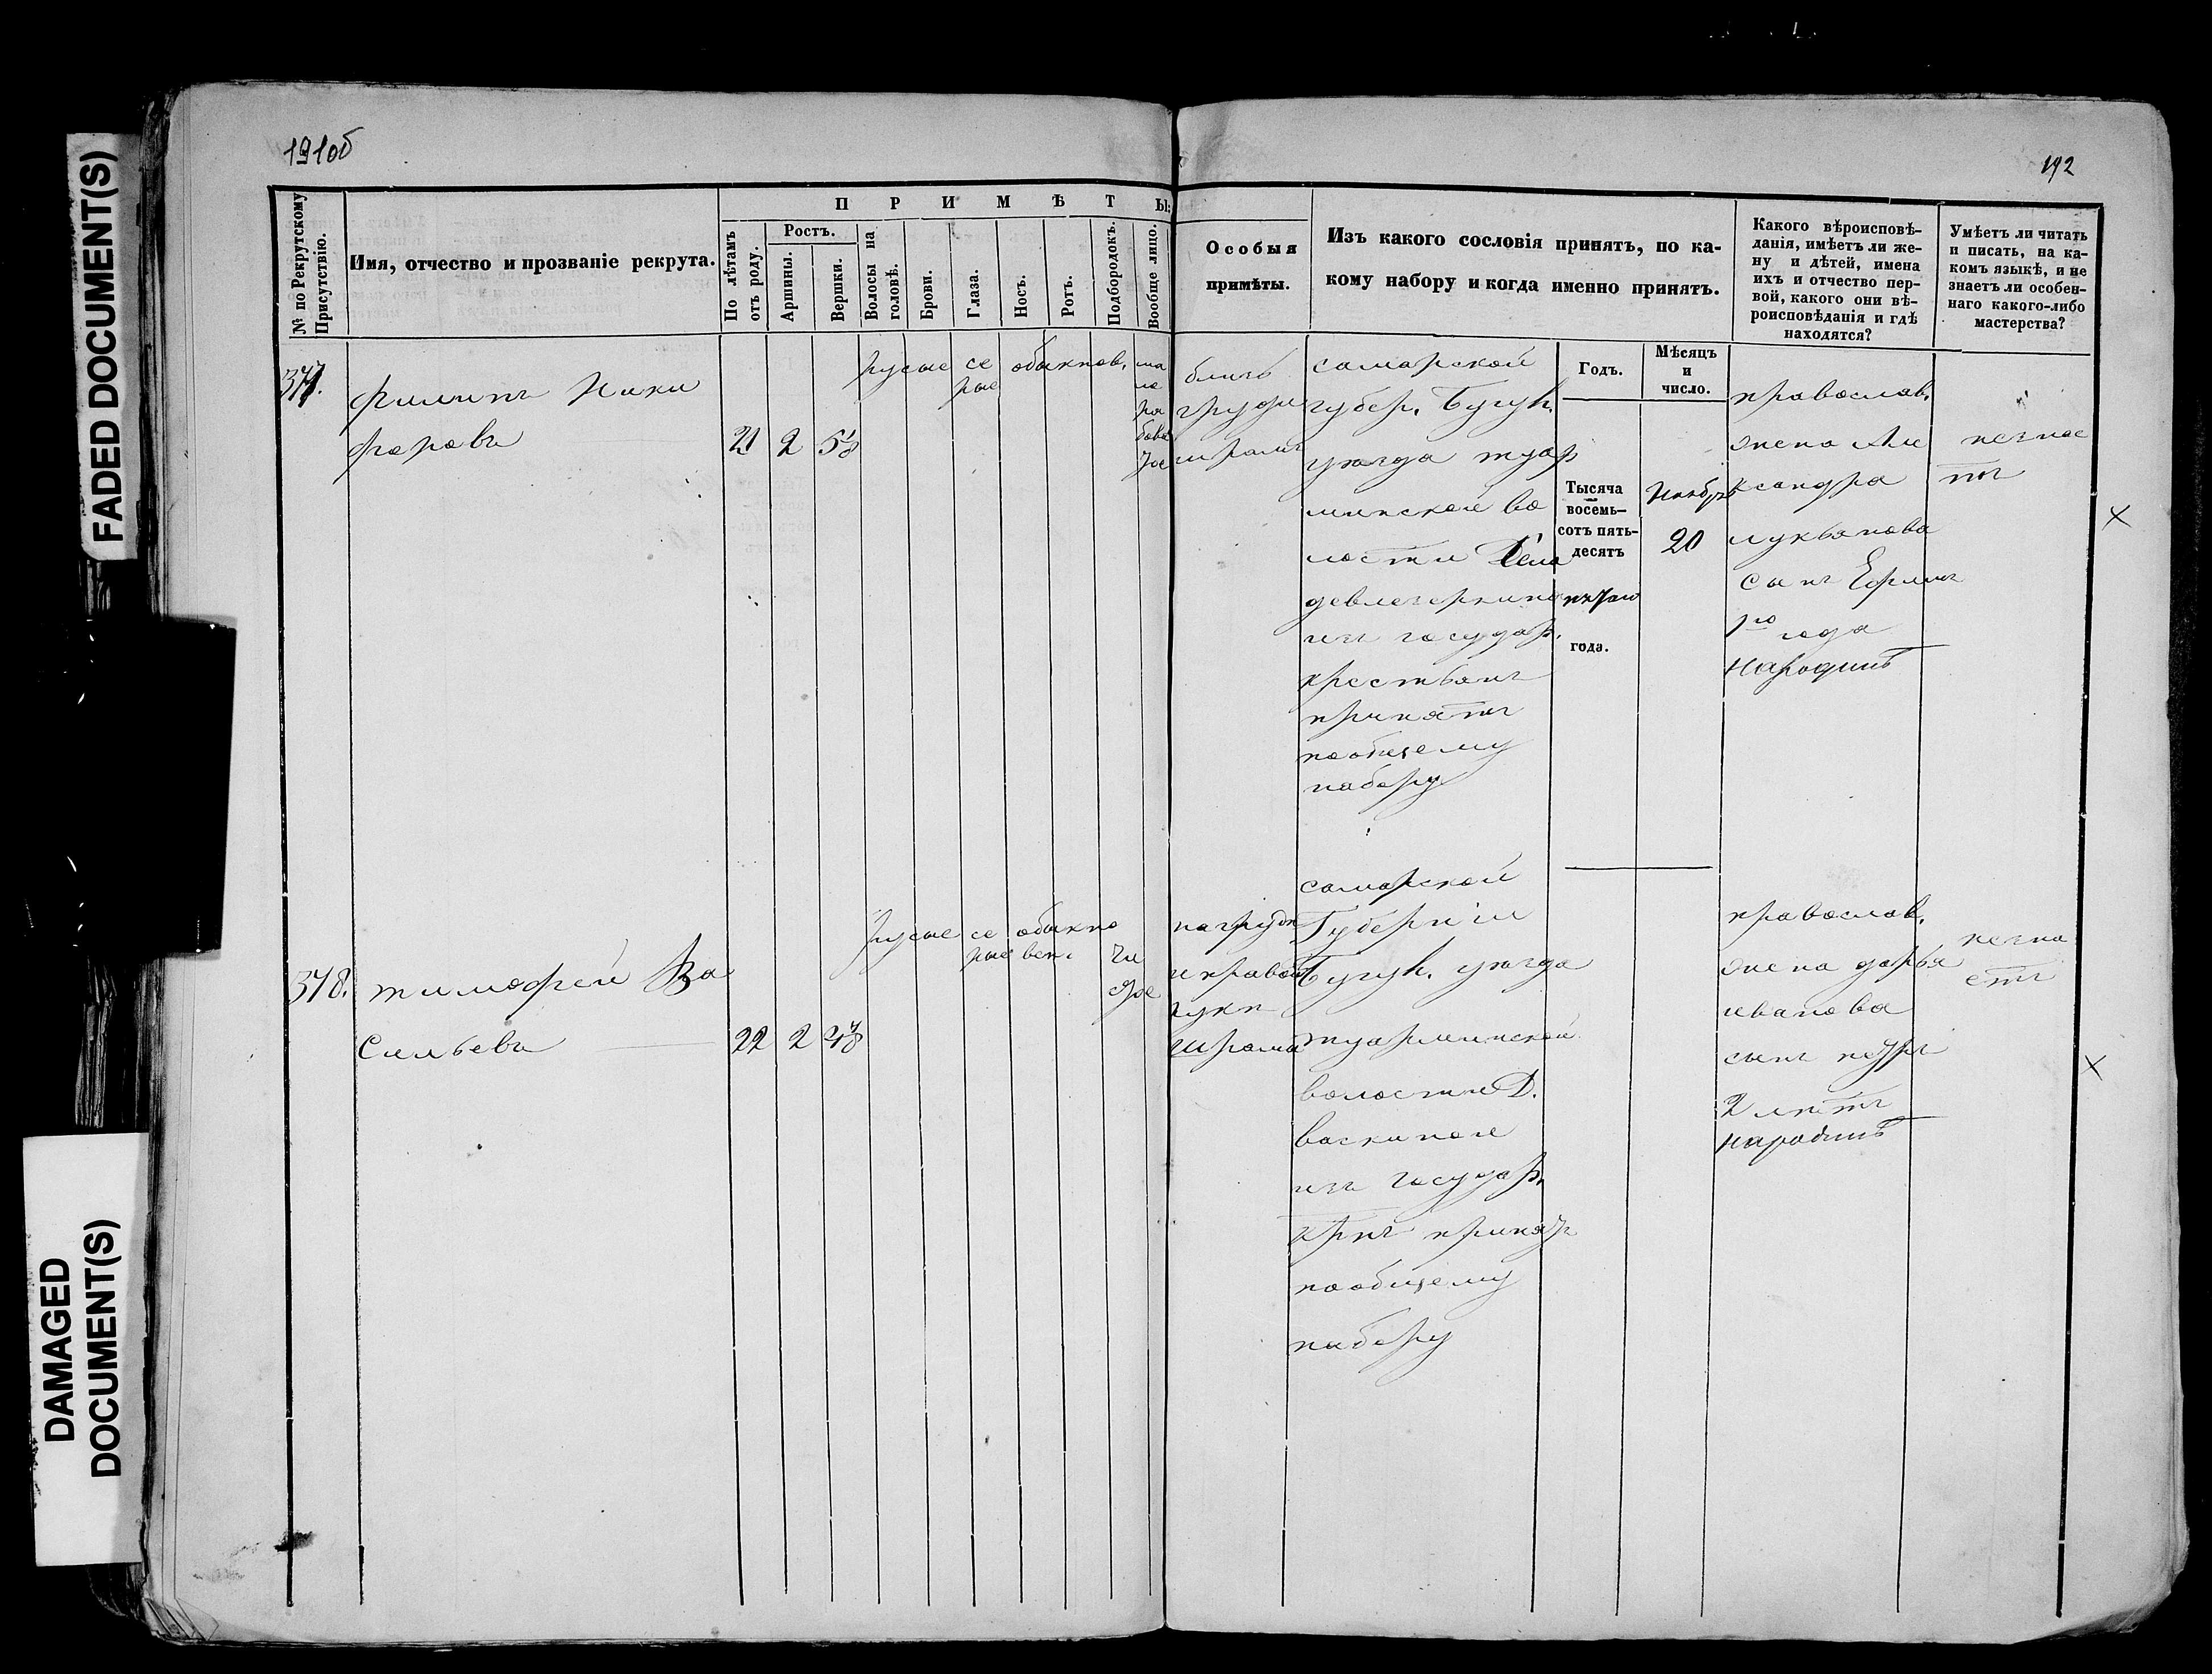 FADED DOCUMENT(S)
DAMAGED
DOCUMENT(S)
191об
192
№ по Рекрутскому
Присутствію.
Имя, отчество и прозваніе рекрута.
ПРИМѢТЫ:
По лѣтамъ
отъ роду.
Ростъ.
Аршины.
Вершки.
Волосы на
головѣ.
Брови.
Глаза.
Носъ.
Ротъ.
Подбородокъ.
Вообще лицо.
Особыя
примѣты.
Изъ какого сословія принятъ, по ка-
кому набору и когда именно принятъ.
Какого вѣроисповѣ-
данія, имѣетъ ли же-
ну и дѣтей, имена
ихъ и отчество пер-
вой, какого они вѣ-
роисповѣданія и гдѣ
находятся?
Умѣетъ ли читать
и писать, на ка-
комъ языкѣ, и не
знаетъ ли особен-
наго какого-либо
мастерства?
377.
Филипъ Ники
форовъ
21 2 5/8
русые се
рые
обыкнов.
близь
груди
шрамъ
самарской
губер. Бугул.
уѣзда туар
минской во
лости
девлезеркино
изъ государ.
крестьянъ
принятъ
пообщему
набору
Годъ.
Тысяча
восемь-
сотъ пять-
десятъ
года.
Мѣсяцъ
и
число.
Ноября
20
православ.
жена Але
ксандра
лукьянова
сынъ
1го года
народинѣ
незнае
тъ
378.
тимофей Ва
сильевъ
22 2
русые се
рые
обыкно
вен.
чи
стое
нагруди
иправой
руки
шрамы
самарской
Губерніи
Бугул. уѣзда
туарминской
волости Д.
васкиной
изъ государ.
крнъ принятъ
пообщему
набору
православ.
жена дарья
иванова
сынъ петръ
2 лѣтъ
народинѣ
незна
етъ